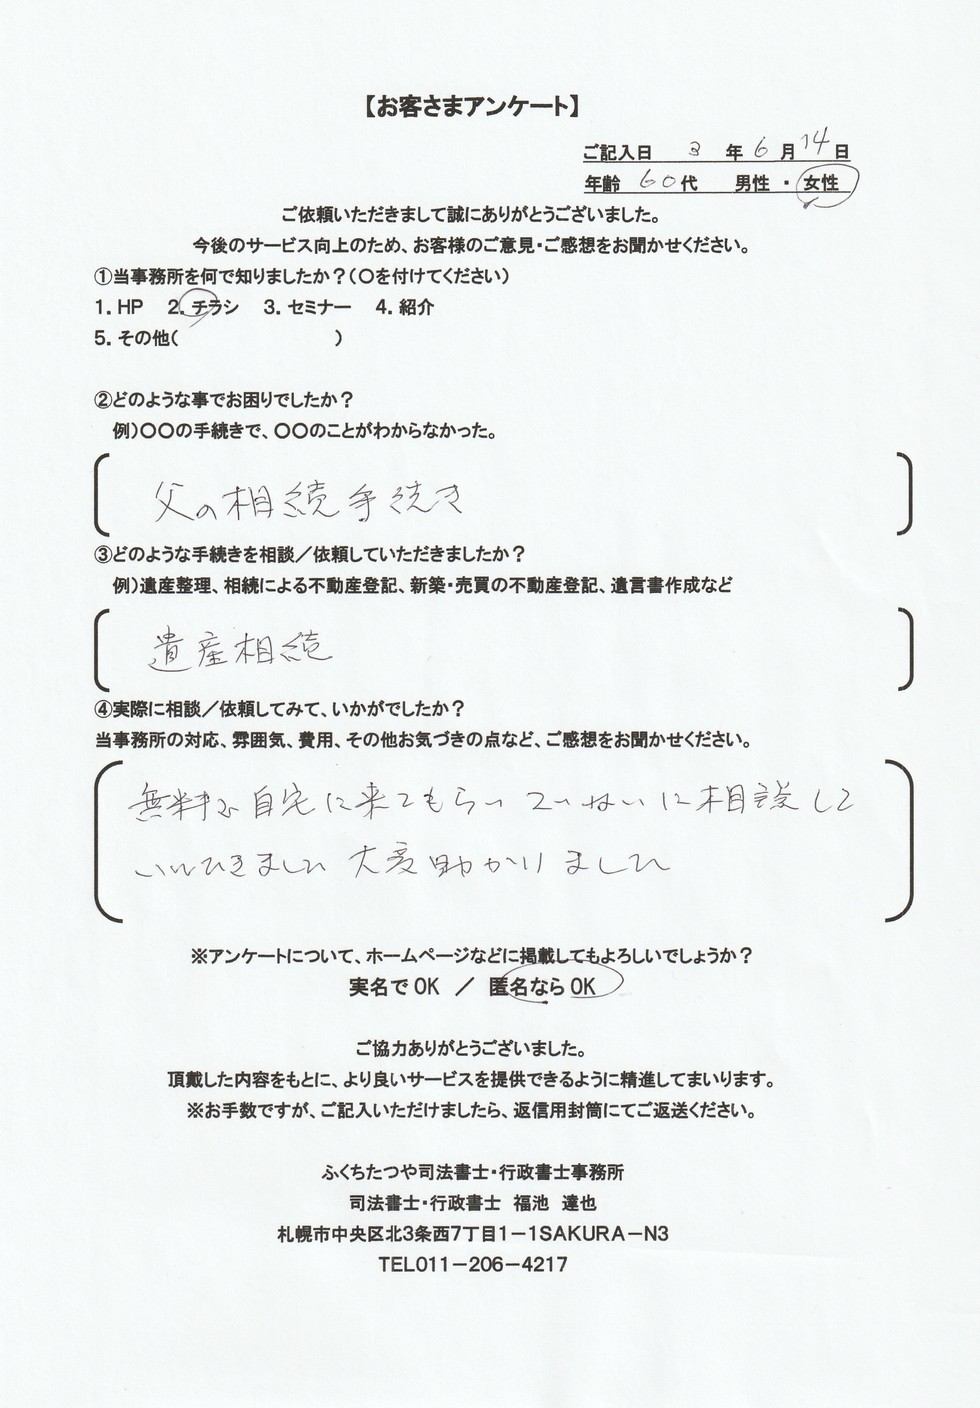 【お客さまアンケート】
ご記入日 3 年 6 月 14 日
年齢 60代 男性 ・ 女性
ご依頼いただきまして誠にありがとうございました。
今後のサービス向上のため、お客様のご意見・ご感想をお聞かせください。
①当事務所を何で知りましたか？（〇を付けてください）
1. HP 2. チラシ 3. セミナー 4. 紹介
5. その他( )
②どのような事でお困りでしたか？
例）〇〇の手続きで、〇〇のことがわからなかった。
父の相続手続き
③どのような手続きを相談／依頼していただきましたか？
例）遺産整理、相続による不動産登記、新築・売買の不動産登記、遺言書作成など
遺産相続
④実際に相談／依頼してみて、いかがでしたか？
当事務所の対応、雰囲気、費用、その他お気づきの点など、ご感想をお聞かせください。
無料で自宅に来てもらい ていねいに相談して
いただきました 大変助かりました
※アンケートについて、ホームページなどに掲載してもよろしいでしょうか？
実名でOK ／ 匿名ならOK
ご協力ありがとうございました。
頂戴した内容をもとに、より良いサービスを提供できるように精進してまいります。
※お手数ですが、ご記入いただけましたら、返信用封筒にてご返送ください。
ふくちたつや司法書士・行政書士事務所
司法書士・行政書士 福池 達也
札幌市中央区北3条西7丁目1－1SAKURA－N3
TEL011－206－4217